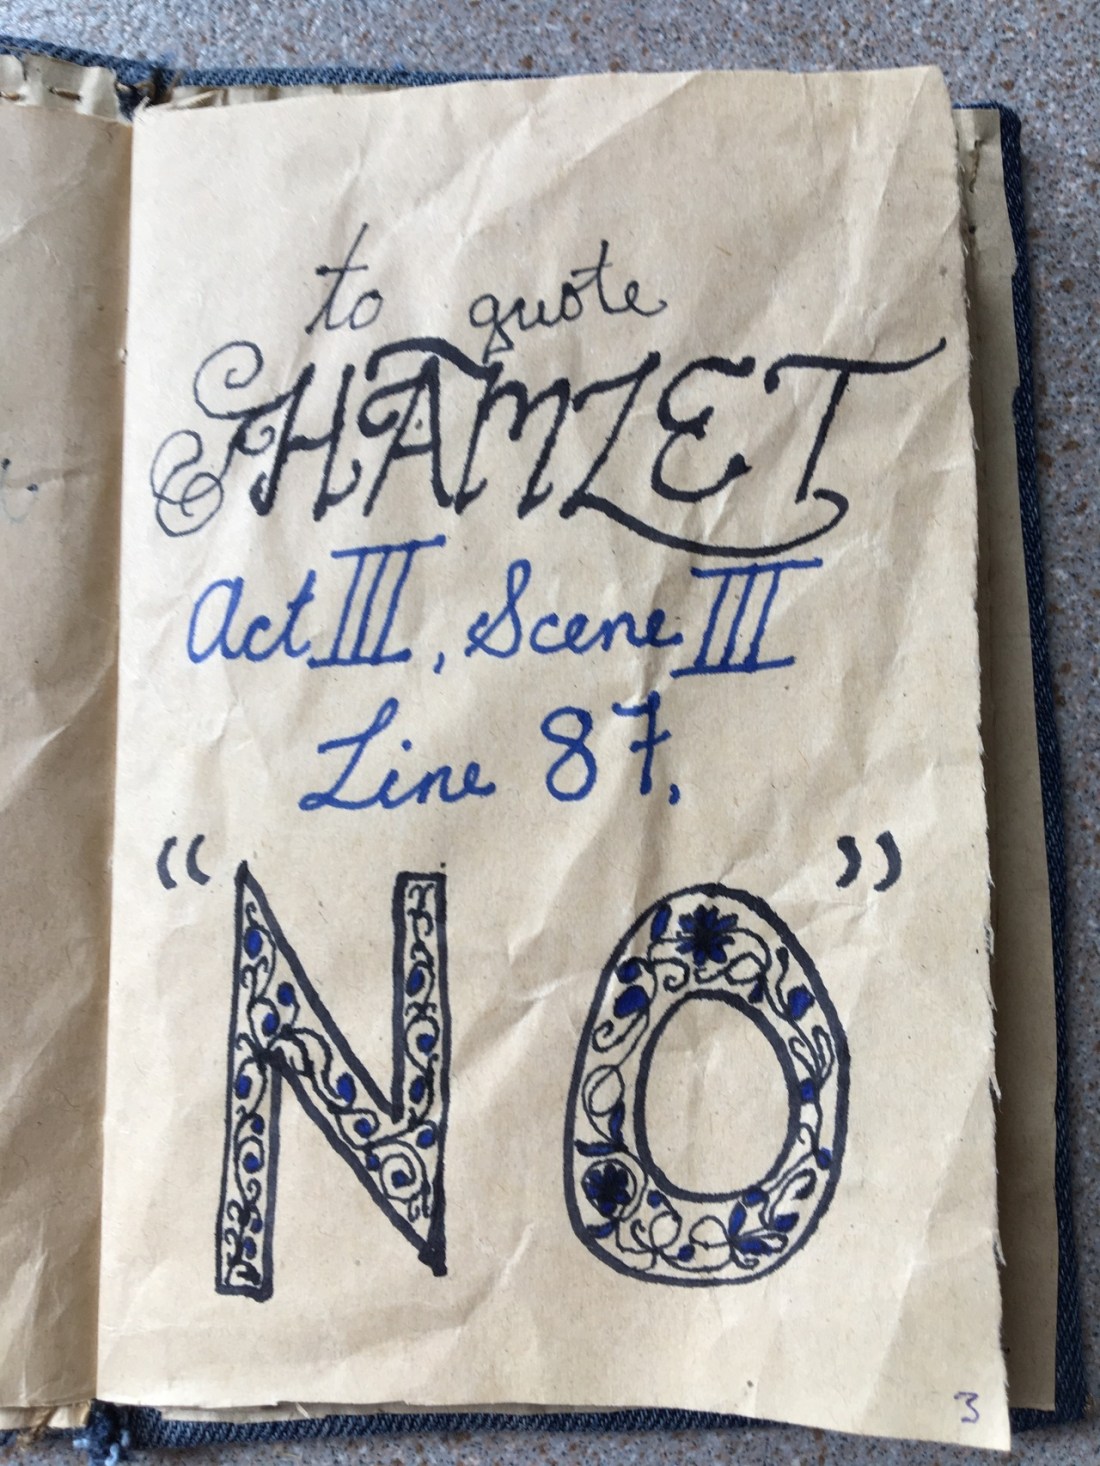 to quote
HAMLET
Act III, Scene III
Line 87,
“NO”
3